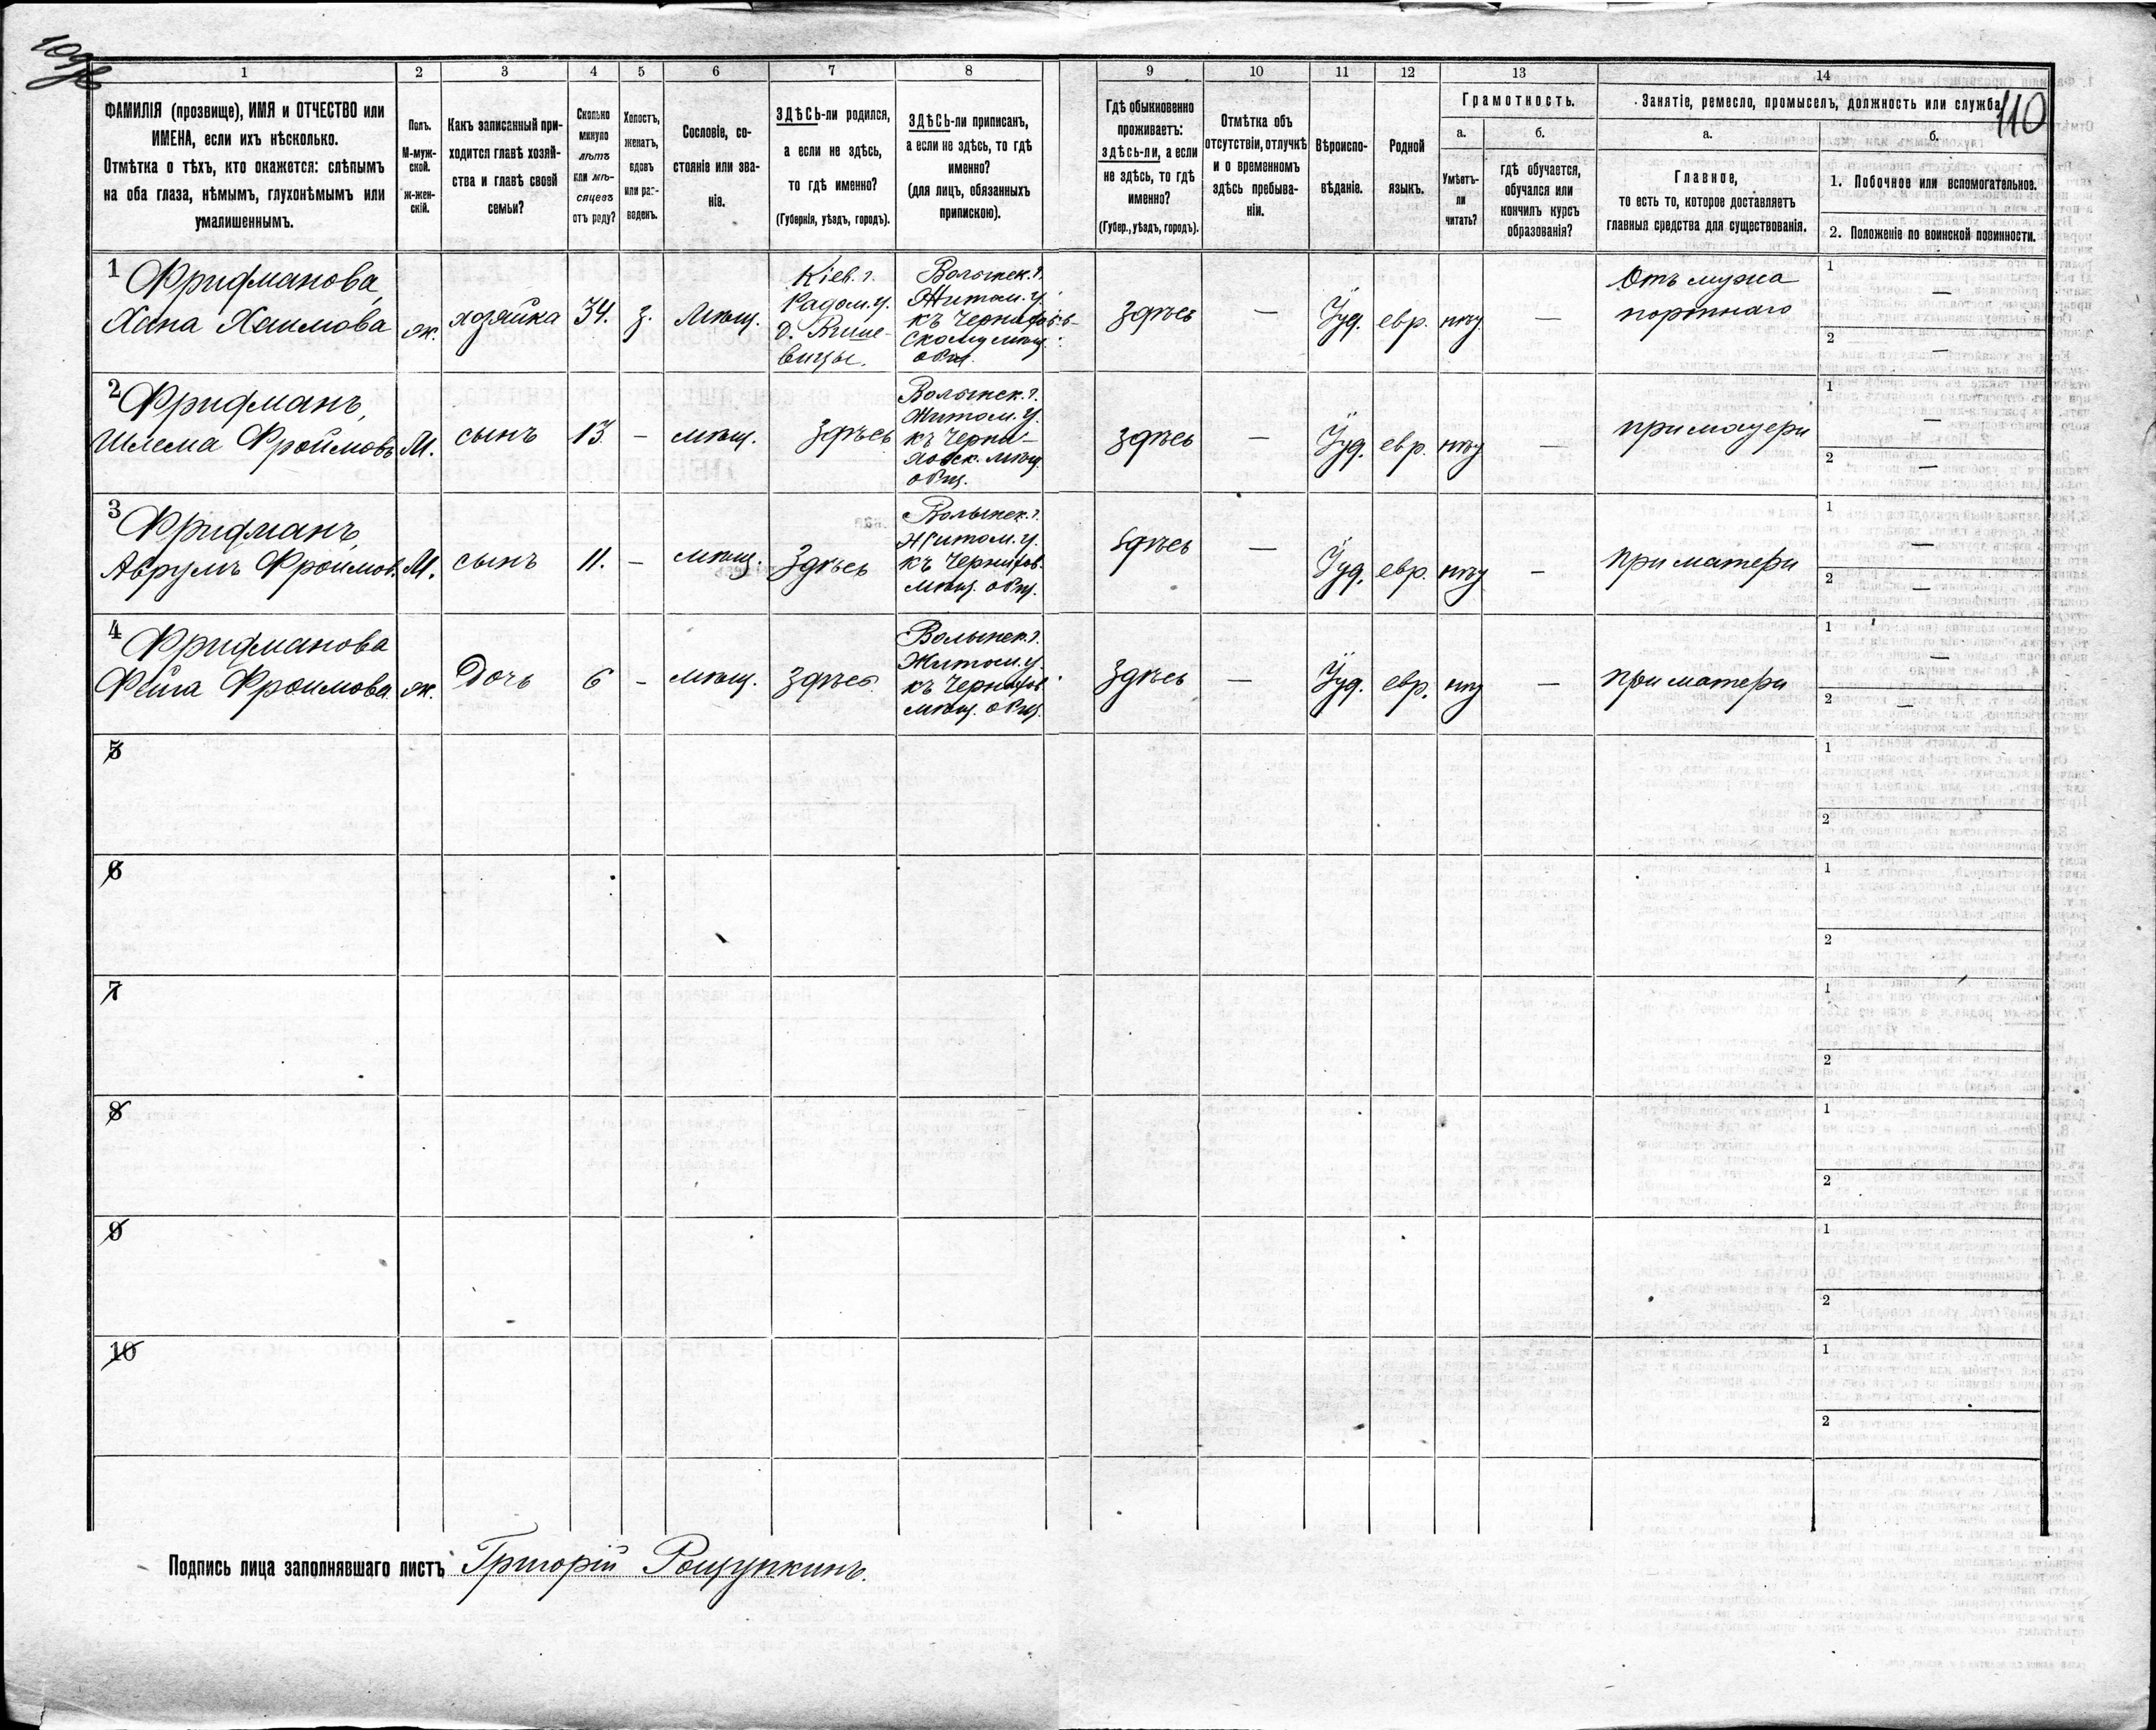 110
1
2
3
4
5
6
7
8
9
10
11
12
13
14
ФАМИЛІЯ (прозвище), ИМЯ и ОТЧЕСТВО или
ИМЕНА, если ихъ нѣсколько.
Отмѣтка о тѣхъ, кто окажется: слѣпымъ
на оба глаза, нѣмымъ, глухонѣмымъ или
умалишеннымъ.
Полъ.
М-муж-
ской.
ж-жен-
скій.
Какъ записанный при-
ходится главѣ хозяй-
ства и главѣ своей
семьи?
Сколько
минуло
лѣтъ
или мѣ-
сяцевъ
отъ роду?
Холостъ,
женатъ,
вдовъ
или раз-
веденъ.
Сословіе, со-
стояніе или зва-
ніе.
ЗДѢСЬ-ли родился,
а если не здѣсь,
то гдѣ именно?
(Губернія, уѣздъ, городъ).
ЗДѢСЬ-ли приписанъ,
а если не здѣсь, то гдѣ
именно?
(для лицъ, обязанныхъ
припискою).
Гдѣ обыкновенно
проживаетъ:
здѣсь-ли, а если
не здѣсь, то гдѣ
именно?
(Губер., уѣздъ, городъ).
Отмѣтка объ
отсутствіи, отлучкѣ
и о временномъ
здѣсь пребыва-
ніи.
Вѣроиспо-
вѣданіе.
Родной
языкъ.
Грамотность.
а.
Умѣетъ-
ли
читать?
б.
гдѣ обучается,
обучался или
кончилъ курсъ
образованія?
Занятіе, ремесло, промыселъ, должность или служба
а.
Главное,
то есть то, которое доставляетъ
главныя средства для существованія.
б.
1. Побочное или вспомогательное.
2. Положеніе по воинской повинности.
1
Фридманова,
Хана Хаимова
ж.
хозяйка
34.
з.
мѣщ.
Кіев. г.
Радом. у.
д.
вицы.
Волынск. г.
Житом. у.
къ Черняхов-
скому мѣщ.
общ.
здѣсь
—
Іуд.
евр.
нѣт
—
Отъ мужа
портнаго
1 —
2 —
2
Фридманъ,
Шлема Фроимовъ
М.
сынъ
13.
-
мѣщ.
здѣсь
Волынск. г.
Житом. у.
къ Черня-
ховск. мѣщ.
общ.
здѣсь
—
Іуд.
евр.
нѣт
—
при матери
1 —
2 —
3
Фридманъ,
Аврумъ Фроимов.
М.
сынъ
11.
-
мѣщ.
здѣсь
Волынск. г.
Житом. у.
къ Черняхов.
мѣщ. общ.
здѣсь
—
Іуд.
евр.
нѣт
—
при матери
1 —
2 —
4
Фридманова
Фейга Фроимова
ж.
Дочь
6
-
мѣщ.
здѣсь
Волынск. г.
Житом. у.
къ Черняхов.
мѣщ. общ.
здѣсь
—
Іуд.
евр.
нѣт
—
при матери
1 —
2 —
5
1
2
6
1
2
7
1
2
8
1
2
9
1
2
10
1
2
Подпись лица заполнявшаго листъ Григорій Рощупкинъ.